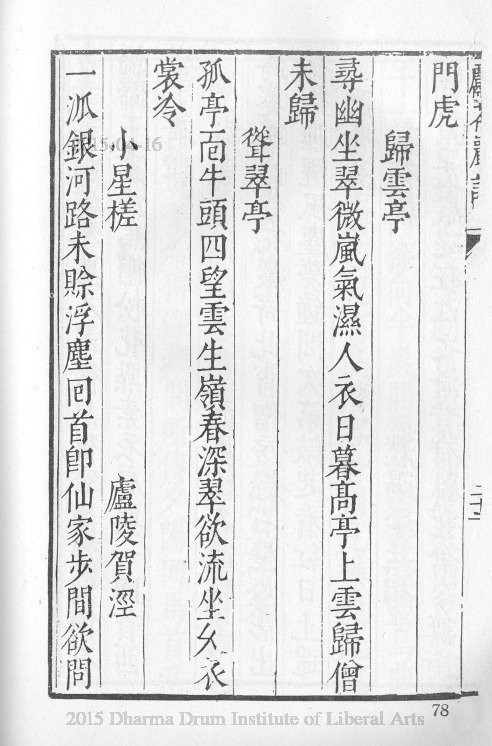 門虎
歸雲亭
尋幽坐翠微嵐氣濕人衣日暮高亭上雲歸僧
未歸
聳翠亭
孤亭面牛頭四望雲生嶺春深翠欲流坐久衣
裳冷
小星槎 廬陵賀涇
一派銀河路未賒浮塵回首即仙家步間欲問
二十三
78
2015 Dharma Drum Institute of Liberal Arts